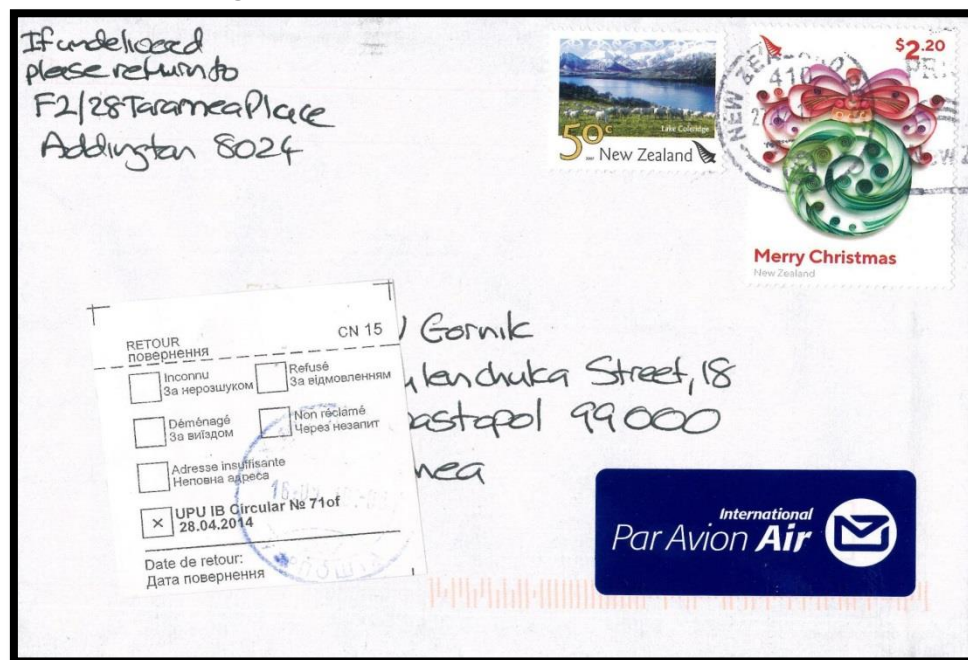 If undelivered
please return to
F2/28 Taramea Place
Addington 8024
50c
Lake Coleridge
New Zealand
$2.20
Merry Christmas
New Zealand
NEW ZEA
410
RETOUR
CN 15
повернення
Inconnu
За нерозшуком
Refusé
За відмовленням
Déménagé
За виїздом
Non réclamé
Через незапит
Adresse insuffisante
Неповна адреса
× UPU IB Circular № 71of
28.04.2014
Date de retour:
Дата повернення
Gornik
lenchuka Street, 18
astopol 99000
mea
International
Par Avion Air